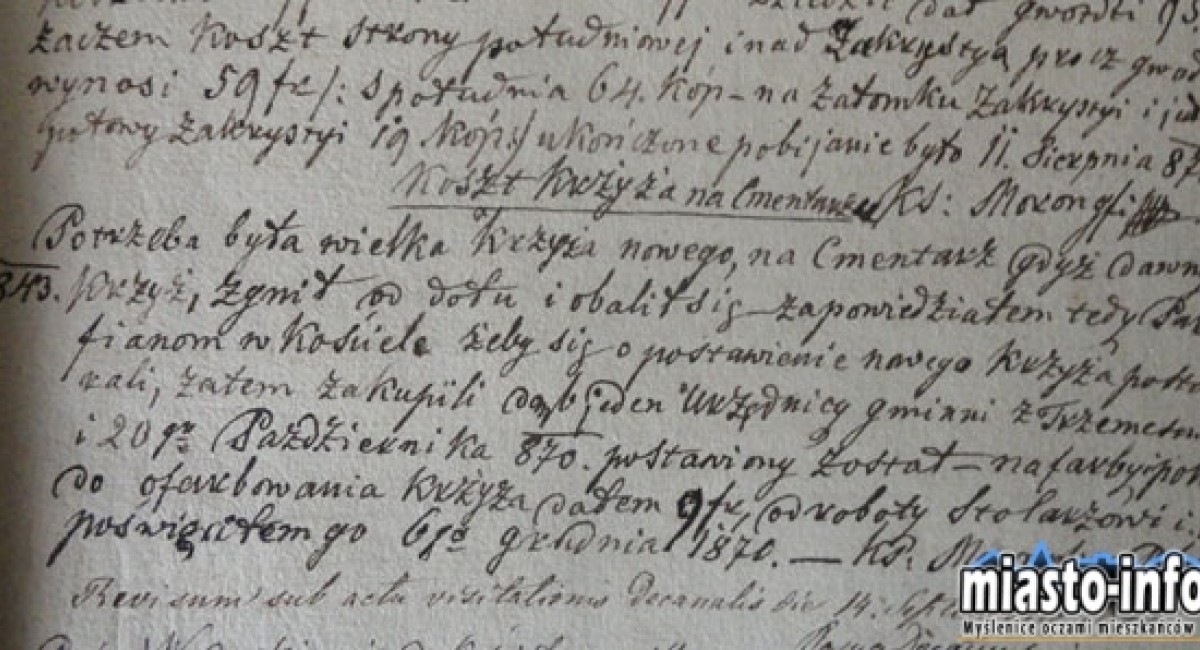 dał gwoździ
zaczem Koszt strony południowej i nad Zakrystyą procz gwoź
wynosi 59 fr/: s południa 64. Kóp – na załomku Zakrystyi i
gotowy Zakrystyi 19 Kóp:/ ukończone pobijanie było 11. Sierpnia 87
Koszt Krzyża na Cmentarzu Ks:
Potrzeba była wielka Krzyża nowego, na Cmentarz gdyż dawny
343. Krzyż, zgnił od dołu i obalił się – zapowiedziałem tedy Para
fianom w Kościele żeby się o postawienie nowego Krzyża posta
rali, zatem zakupili dąb jeden Urzędnicy gminni z Trzemesni
i 20go Października 870. postawiony został – na farby i pok
do ofarbowania Krzyża dałem 9 fr, od roboty Stolarzowi i
poświęciłem go 6go grudnia 1870. – Ks:
Revisum sub actu visitationis Decanalis die 14.
miasto-info
Myślenice oczami mieszkańców